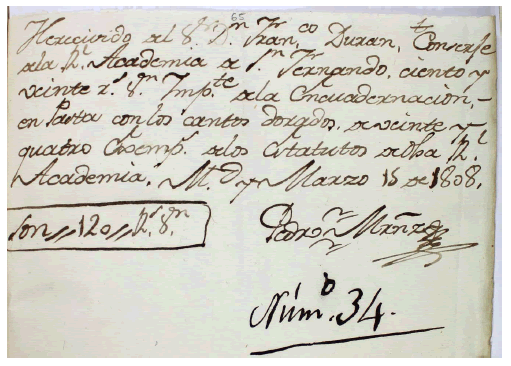 65
He recivido del S.r D.n Fran.co Duran, Conserje
de la R.l Academia de S.n Fernando, ciento y
veinte r.s v.n Imp.te de la Encuadernacion,
en Pasta con los cantos dorados, de veinte y
quatro Exemp.s de los Estatutos de dha R.l
Academia. M.d y Marzo 15 de 1808.
Son,,120,,R.s v.n
Pedro Mrñz
Núm.o 34.